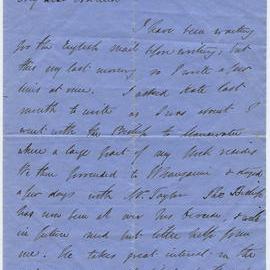 I have been waiting
for the English mail before writing, but
this my last morning so I write a few
lines at once. I asked Kate last
month to write as I was about
went with the Bishop to Manawatu
where a large part of my flock resides
We then proceeded to Wanganui & stayed
a few days with Mr. Taylor The Bishop
has now been all over his Diocese, &
in future need but little help from
me. He takes great interest in the